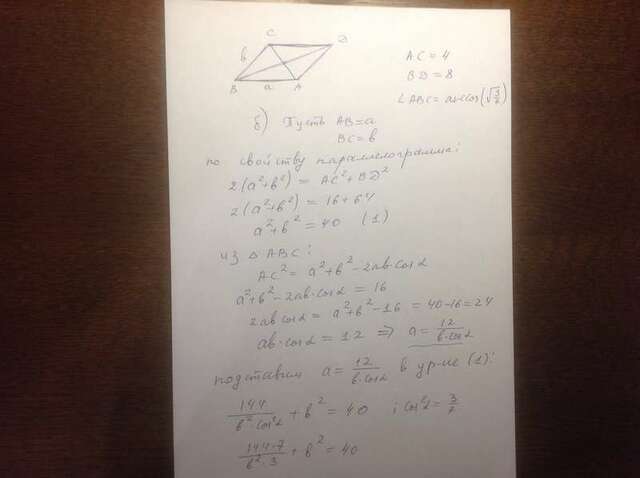 C D
в
B a A
AC = 4
BD = 8
∠ABC = arccos(√3/7)
б) Пусть AB = a
BC = в
по свойству параллелограмма:
2(a²+в²) = AC²+BD²
2(a²+в²) = 16+64
a²+в² = 40 (1)
из △ABC:
AC² = a²+в²-2aв·cosα
a²+в²-2aв·cosα = 16
2aв cosα = a²+в²-16 = 40-16=24
aв·cosα = 12 ⇒ a = 12/в·cosα
подставим a = 12/в·cosα в ур-ие (1):
144/в²·cos²α + в² = 40 ; cos²α = 3/7
144·7/в²·3 + в² = 40